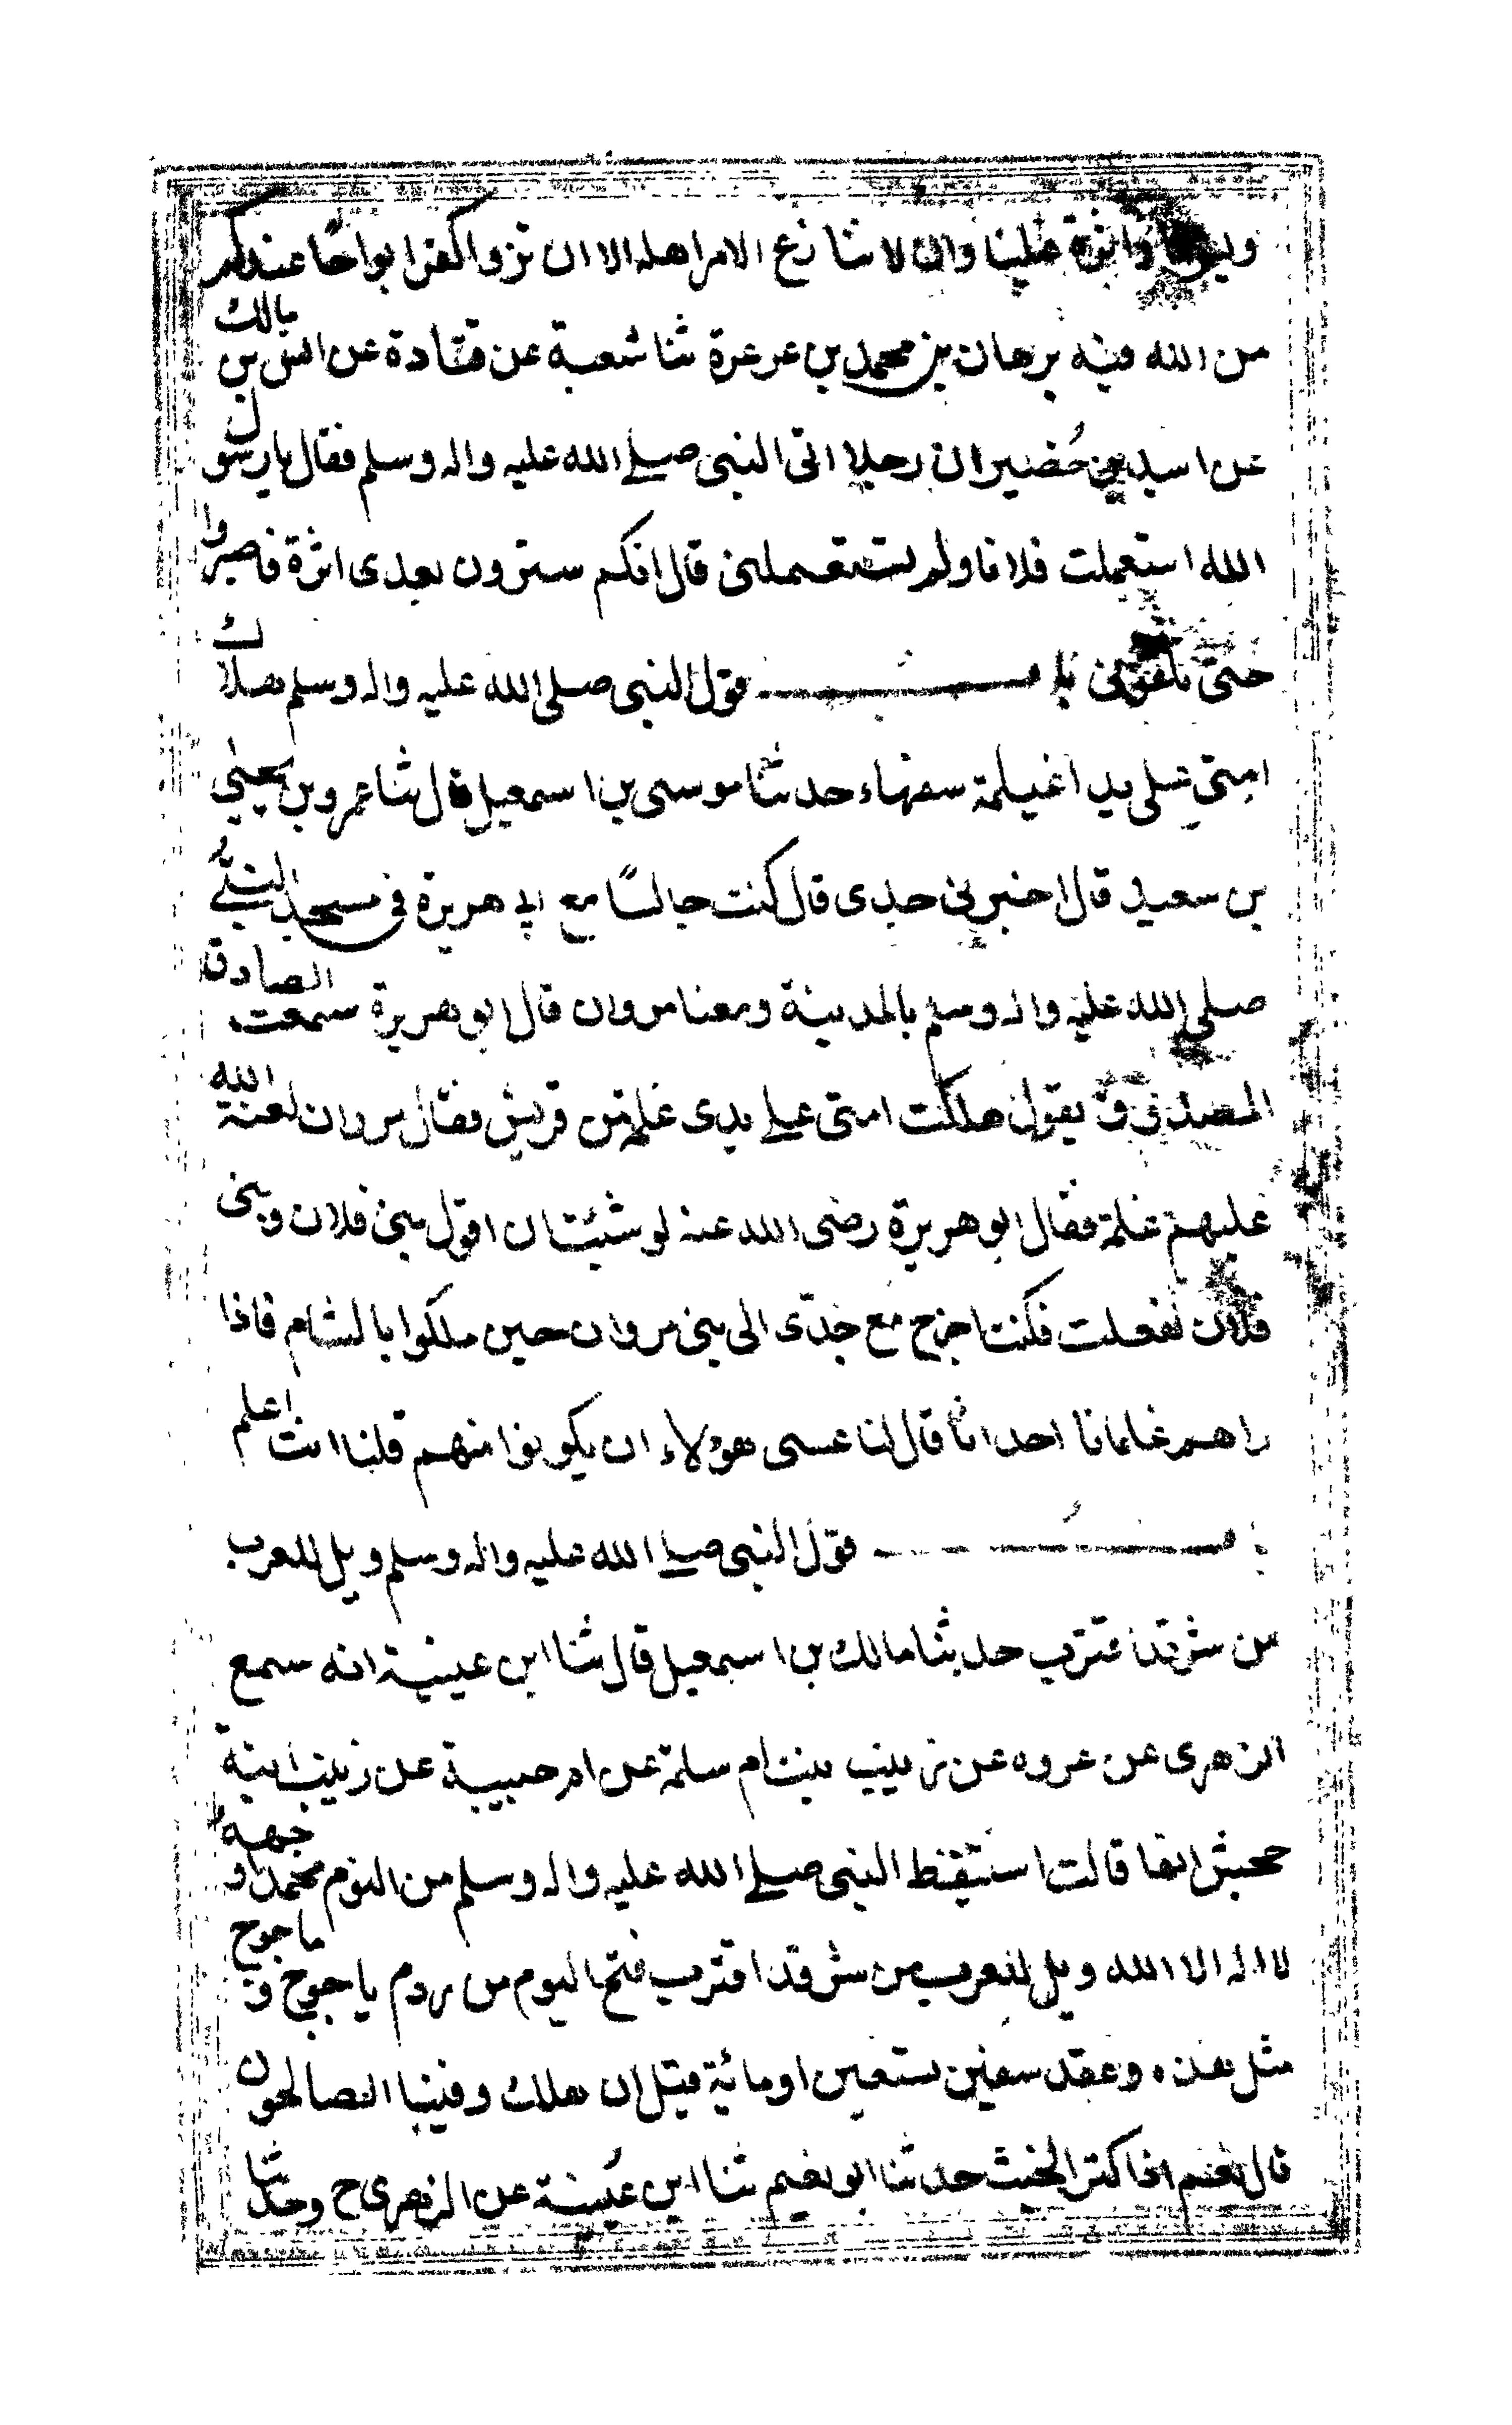 واثرة علينا وان لا ننازع الامر اهله الا ان تروا كفرا بواحًا عندكم
من الله فيه برهان بن محمد بن عرعرة ثنا شعبة عن قتادة عن انس بن مالك
عن اسيد بن حُضير ان رجلا اتى النبى صلى الله عليه واله وسلم فقال يا رسول
الله استعملت فلانا ولم تستعملنى قال انكم سترون بعدى اثرة فاصبروا
حتى تلقونى باب قول النبى صلى الله عليه واله وسلم هلاك
امتى على يد اغيلمة سفهاء حدثنا موسى بن اسمعيل قال ثنا عمرو بن يحيى
بن سعيد قال اخبرنى جدى قال كنت جالسًا مع ابى هريرة فى مسجد النبى
صلى الله عليه واله وسلم بالمدينة ومعنا مروان قال ابو هريرة سمعت الصادق
المصدوق يقول هلكت امتى على يدى غلمة من قريش فقال مروان لعنة الله
عليهم غلمة فقال ابو هريرة رضى الله عنه لو شئت ان اقول بنى فلان وبنى
فلان لفعلت فكنت اخرج مع جدّى الى بنى مروان حين ملكوا بالشام فاذا
راهم غلمانا احداثا قال لنا عسى هولاء ان يكونوا منهم قلنا انت اعلم
باب قول النبى صلى الله عليه واله وسلم ويل للعرب
من شر قد اقترب حدثنا مالك بن اسمعيل قال ثنا ابن عيينة انه سمع
الزهرى عن عروه عن زينب بنت ام سلمة عن ام حبيبة عن زينب ابنة
جحش انها قالت استيقظ النبى صلى الله عليه واله وسلم من النوم محمرا وجهه
لا اله الا الله ويل للعرب من شر قد اقترب فتح اليوم من ردم ياجوج و ماجوج
مثل هذه وعقد سفين تسعين او مائة قيل ان هلك وفينا الصالحون
قال نعم اذا كثر الخبث حدثنا ابو نعيم ثنا ابن عيينة عن الزهرى ح وحدثنا